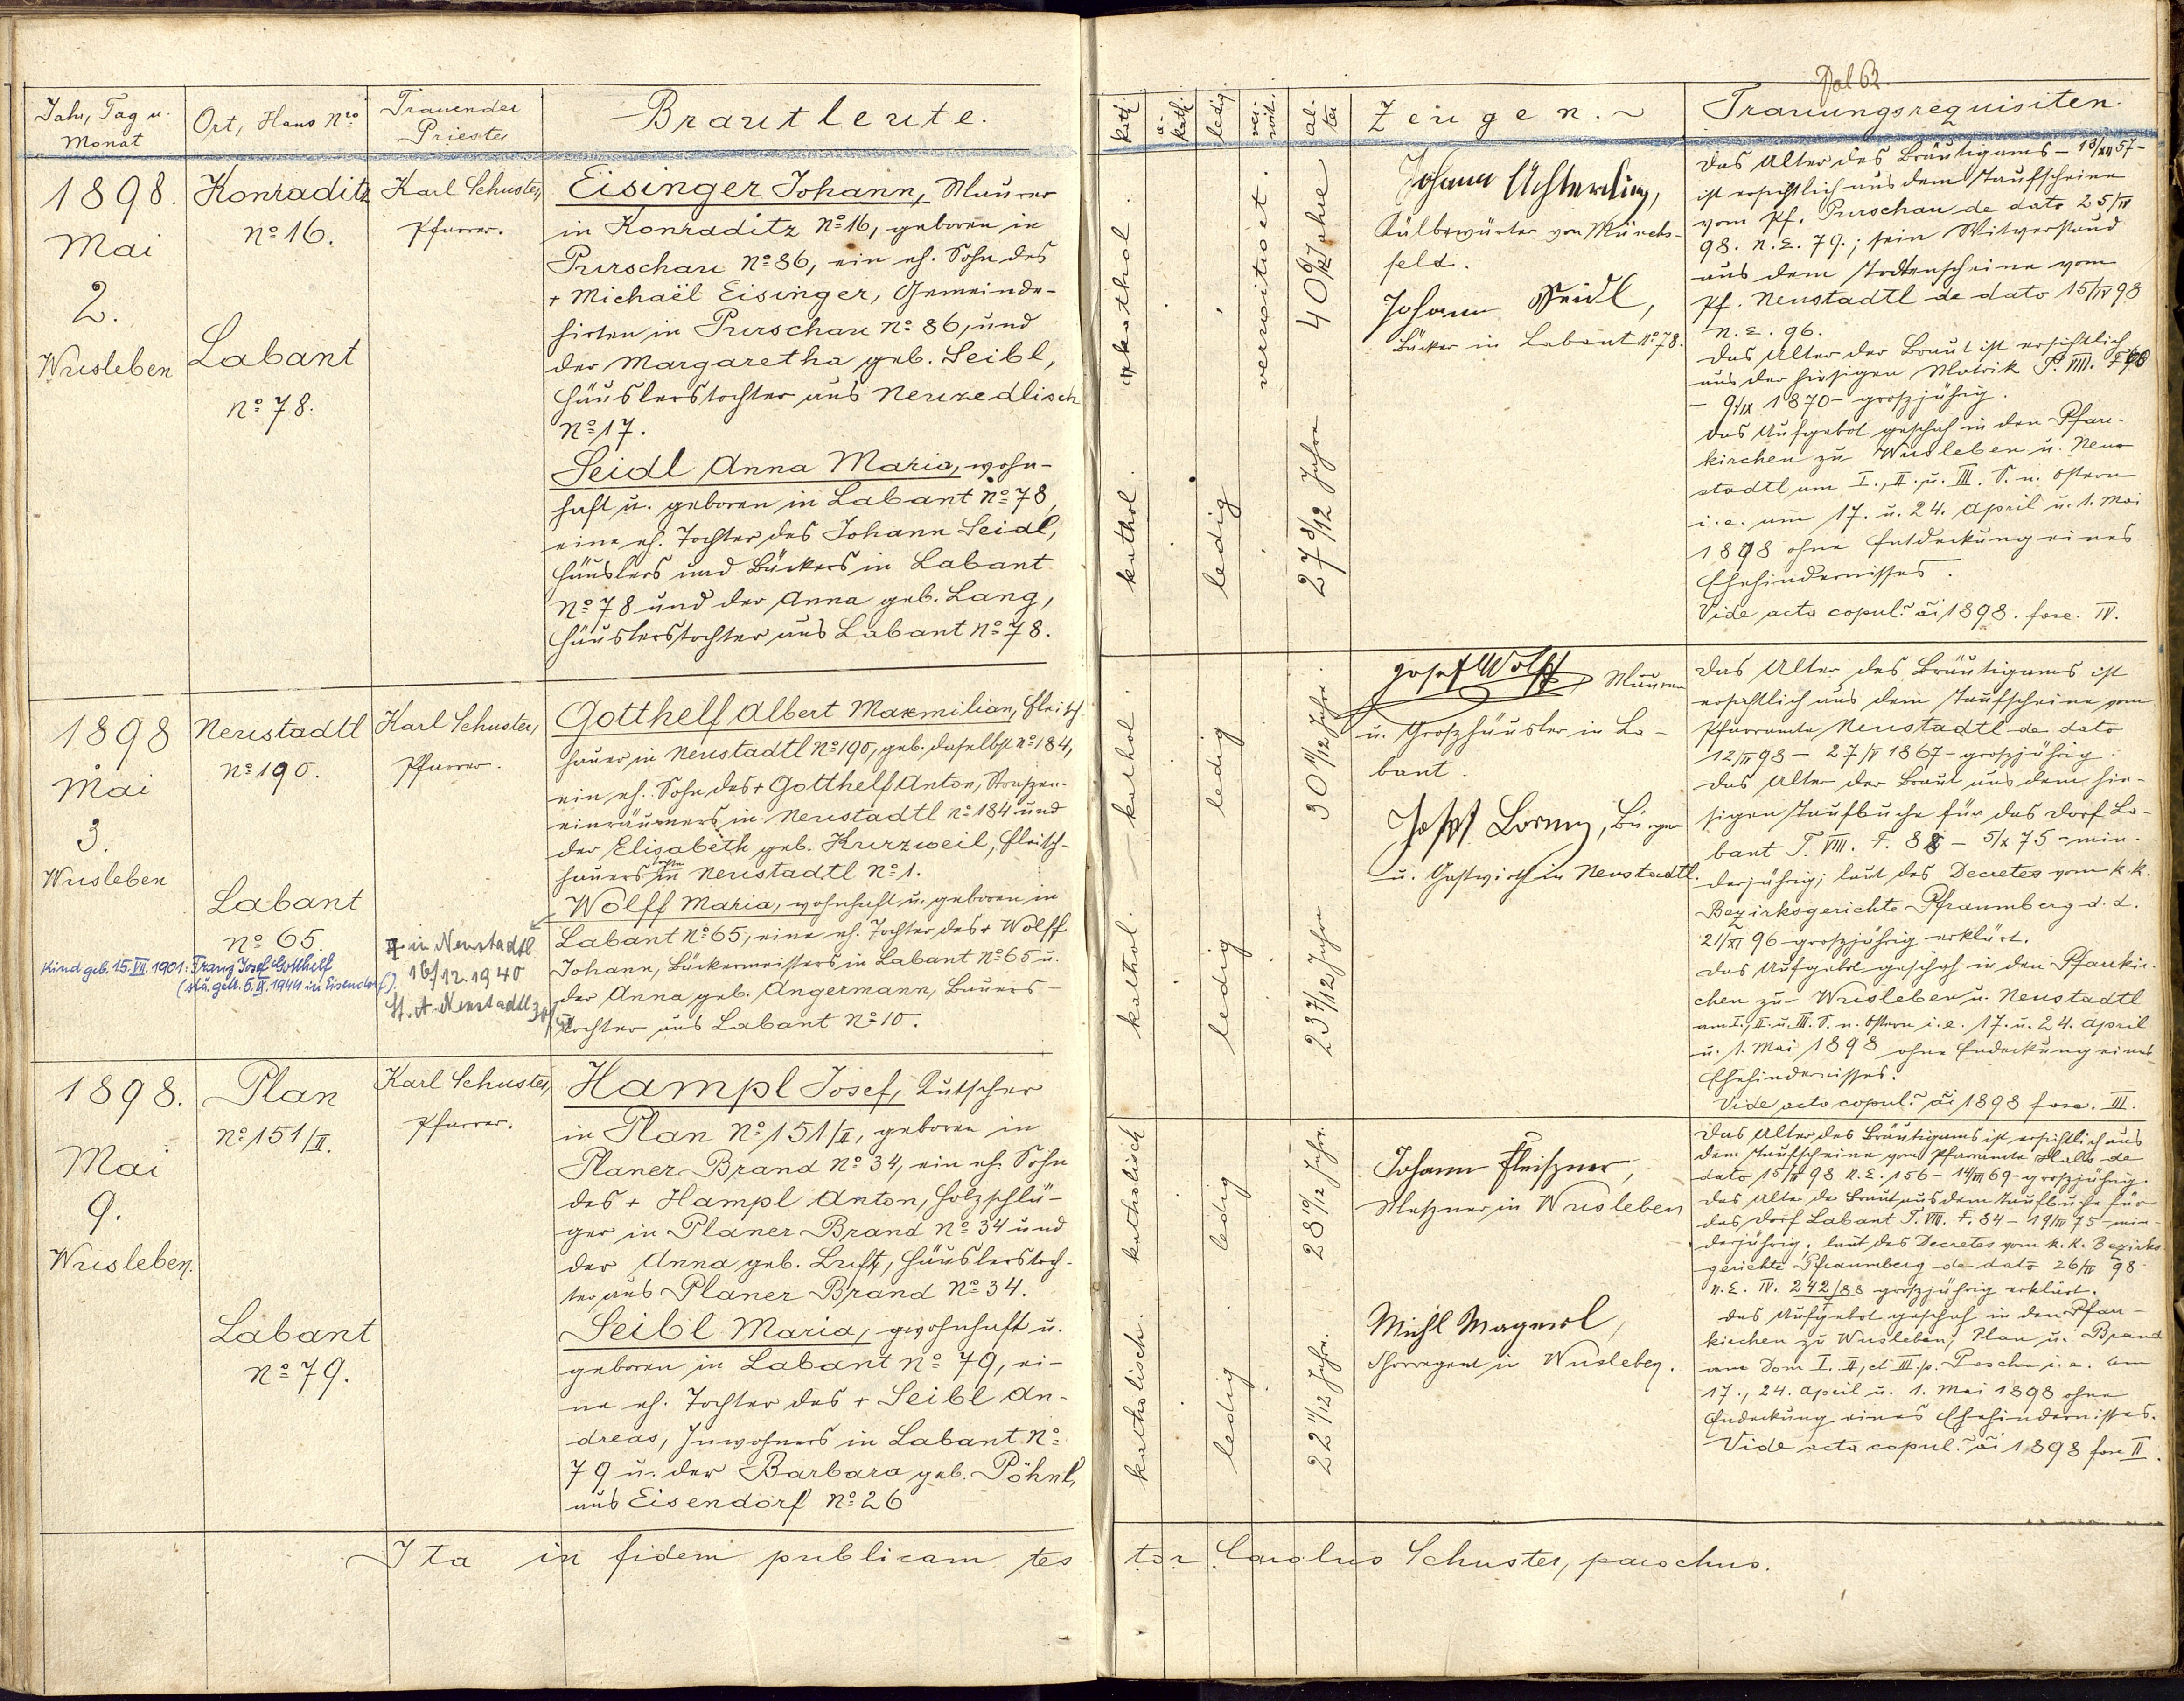 Fol 63.
Jahr, Tag u. Monat
Ort, Haus Nro
Trauender Priester
Brautleute.
kath.
a-kath.
ledig
ver-wit.
al-ter
Zeugen.
Trauungsrequisiten.
1898.
Mai
2.
Wusleben
Konraditz
No 16.
Labant
No 78.
Karl Schuster,
Pfarrer.
Eisinger Johann, Maurer
in Konraditz No 16, geboren in
Purschau No 86, ein eh. Sohn des
+ Michaël Eisinger, Gemeinde-
hirten in Purschau No 86, und
der Margaretha geb. Seibl,
Häuslerstochter aus Neuzedlisch
No 17.
Seidl Anna Maria, wohn-
haft u. geboren in Labant No 78,
eine eh. Tochter des Johann Seidl,
Häuslers und Bäckers in Labant
No 78 und der Anna geb. Lang,
Häuslerstochter aus Labant No 78.
kathol.
verwitwet.
40 Jahre
kathol.
ledig
27 8/12 Jahre
Johann
von
feld.
Johann Seidl,
Bäcker in Labant No 78.
Das Alter des Bräutigams - 57 -
ist ersichtlich aus dem Taufscheine
vom Pf. Purschau de dato 25/IV
98. N.E. 79.; sein Witwerstand
aus dem Todtenscheine vom
Pf. Neustadtl de dato 15/IV 98
N.E. 96.
Das Alter der Braut ist ersichtlich
aus der hiesigen Matrik T. VIII.
- 9/IX 1870 - groszjährig.
Das Aufgebot geschah in den Pfarr-
kirchen zu Wusleben u. Neu-
stadtl am I., II. u. III. S. n. Ostern
i.e. am 17. u. 24. April u. 1. Mai
1898 ohne Entdeckung eines
Ehehindernisses.
Vide acta copul. ai 1898. fasc. IV.
1898
Mai
3.
Wusleben
Neustadtl
No 190.
Labant
No 65.
Karl Schuster,
Pfarrer.
Kind geb. 15. VII. 1901: Franz Josef Gotthelf
(sta. getr. 5. IX. 1944 in Eisendorf).
+ in Neustadtl
16/12. 1940
St. A. Neustadtl
Gotthelf Albert Maxmilian, Fleisch-
hauer in Neustadtl No 190, geb. daselbst No 184,
ein eh. Sohn des + Gotthelf Anton, Straszen-
einräumers in Neustadtl No 184 und
der Elisabeth geb. Kurzweil, Fleisch-
hauerstochter in Neustadtl No 1.
Wolff Maria, wohnhaft u. geboren in
Labant No 65, eine eh. Tochter des + Wolff
Johann, Bäckermeisters in Labant No 65 u.
der Anna geb. Angermann, Bauers-
tochter aus Labant No 10.
kathol.
ledig
30 11/12 Jahre.
kathol.
ledig
23 7/12 Jahre
Josef Wolff, Maurer
u. Groszhäusler in La-
bant.
Josef Lorenz, Bürger
u. Gastwirth in Neustadtl.
Das Alter des Bräutigams ist
ersichtlich aus dem Taufscheine vom
Pfarramte Neustadtl de dato
12/IV 98 - 27/V 1867 - groszjährig.
Das Alter der Braut aus dem hie-
sigen Taufbuche für das Dorf La-
bant T. VIII. F. - 5/X 75 - min-
derjährig; laut des Decretes vom k.k.
Bezirksgerichte Pfraumberg d. d.
21/XI 96 groszjährig erklärt.
Das Aufgebot geschah in den Pfarrkir-
chen zu Wusleben u. Neustadtl
am I., II. u. III. S. n. Ostern i.e. 17. u. 24. April
u. 1. Mai 1898 ohne Endeckung eines
Ehehindernisses.
Vide acta copul. ai 1898 fasc. III.
1898.
Mai
9.
Wusleben.
Plan
No 151/II.
Labant
No 79.
Karl Schuster,
Pfarrer.
Hampl Josef, Kutscher
in Plan No 151/II, geboren in
Planer Brand No 34, ein eh. Sohn
des + Hampl Anton, Holzschlä-
ger in Planer Brand No 34 und
der Anna geb. Luft, Häuslerstoch-
ter aus Planer Brand No 34.
Seibl Maria, wohnhaft u.
geboren in Labant No 79, ei-
ne eh. Tochter des + Seibl An-
dreas, Inwohners in Labant No
79 u. der Barbara geb. Pöhnl,
aus Eisendorf No 26
katholisch
ledig
28 10/12 Jahre.
katholisch.
ledig
22 11/12 Jahre.
Johann Fleiszner,
Meszner in Wusleben
Michl Magerl,
Chorregent in Wusleben.
Das Alter des Bräutigams ist ersichtlich aus
dem Taufscheine vom Pfarramte Hals de
dato 15/IV 98 N.E. 156 - 69 - groszjährig.
Das Alter der Braut aus dem Taufbuche für
das Dorf Labant T. VIII. F. 84 - 75 - min-
derjährig, laut des Decretes vom k.k. Bezirks-
gerichte Pfraumberg de dato 26/IV 98
N.E. IV. 242/98 groszjährig erklärt.
Das Aufgebot geschah in den Pfarr-
kirchen zu Wusleben, Plan u. Brand
am Dom I. II, et III. p. Pascha i.e. am
17., 24. April u. 1. Mai 1898 ohne
Endeckung eines Ehehindernisses.
Vide acta copul. ai 1898 fasc II.
Ita in fidem publicam testor Carolus Schuster, parochus.